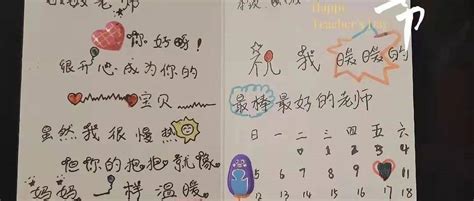 老师
你好呀!
很开心成为你的
宝贝
虽然我很慢热
但你的抱抱就像
妈妈一样温暖
Happy
Teacher's Day
节
祝我暖暖的
最棒最好的老师
日 一 二 三 四 五 六
1 2 3 4
5 6 7 8 9 11
12 13 14 15 16 17 18